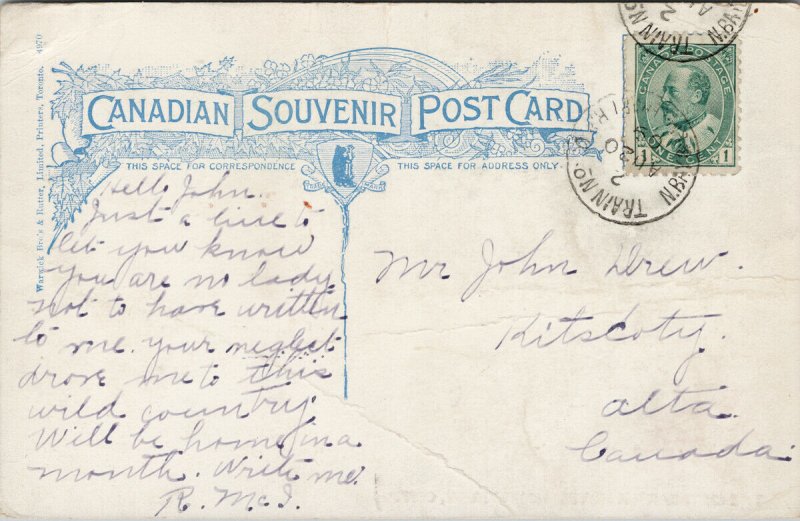 CANADIAN SOUVENIR POST CARD
THIS SPACE FOR CORRESPONDENCE
THIS SPACE FOR ADDRESS ONLY.
Warwick Bro's & Rutter, Limited, Printers, Toronto. 4970
Hello John.
Just a line to
let you know
you are no lady
not to have written
to me. your neglect
drove me to this
wild country.
Will be home in a
month. Write me.
R. McI.
Mr John Drew.
Kitscoty.
Alta.
Canada.
CANADA POSTAGE
ONE CENT
1 1
TRAIN No.
2
AU 20
TRAIN No
2